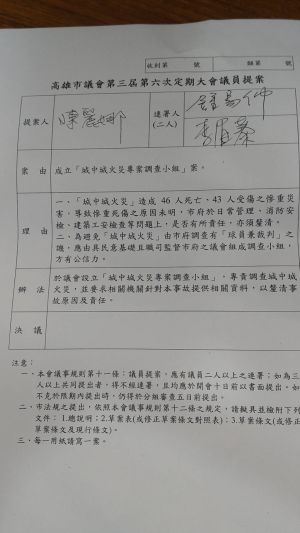 收到第　號　歸第　號
高雄市議會第三屆第六次定期大會議員提案
提案人　陳麗娜　連署人(二人)　鍾易仲
案由　成立「城中城火災專案調查小組」案。
理由　一、「城中城火災」造成 46 人死亡、43 人受傷之慘重災
害，導致慘重死傷之原因未明，市府於日常管理、消防安
檢、建築工安檢查等問題上，是否有所責任，亦須釐清。
二、為避免「城中城火災」由市府調查有「球員兼裁判」之
譏，應由具民意基礎且職司監督市府之議會組成調查小組，
方有公信力。
辦法　於議會設立「城中城火災專案調查小組」，專責調查城中城
火災，並要求相關機關針對本事故提供相關資料，以釐清事
故原因及責任。
決議
注意：
一、本會議事規則第十一條：議員提案，應有議員二人以上之連署；如為三
人以上共同提出者，得不經連署，且均應於開會十日前以書面提出。如
不克於限期內提出時，仍得於分組審查五日前提出。
二、市法規之提出，依照本會議事規則第十二條之規定，請擬具並檢附下列
文件：1.總說明；2.草案表(或修正草案條文對照表)；3.草案條文(或修正
草案條文及現行條文)。
三、每一用紙請寫一案。